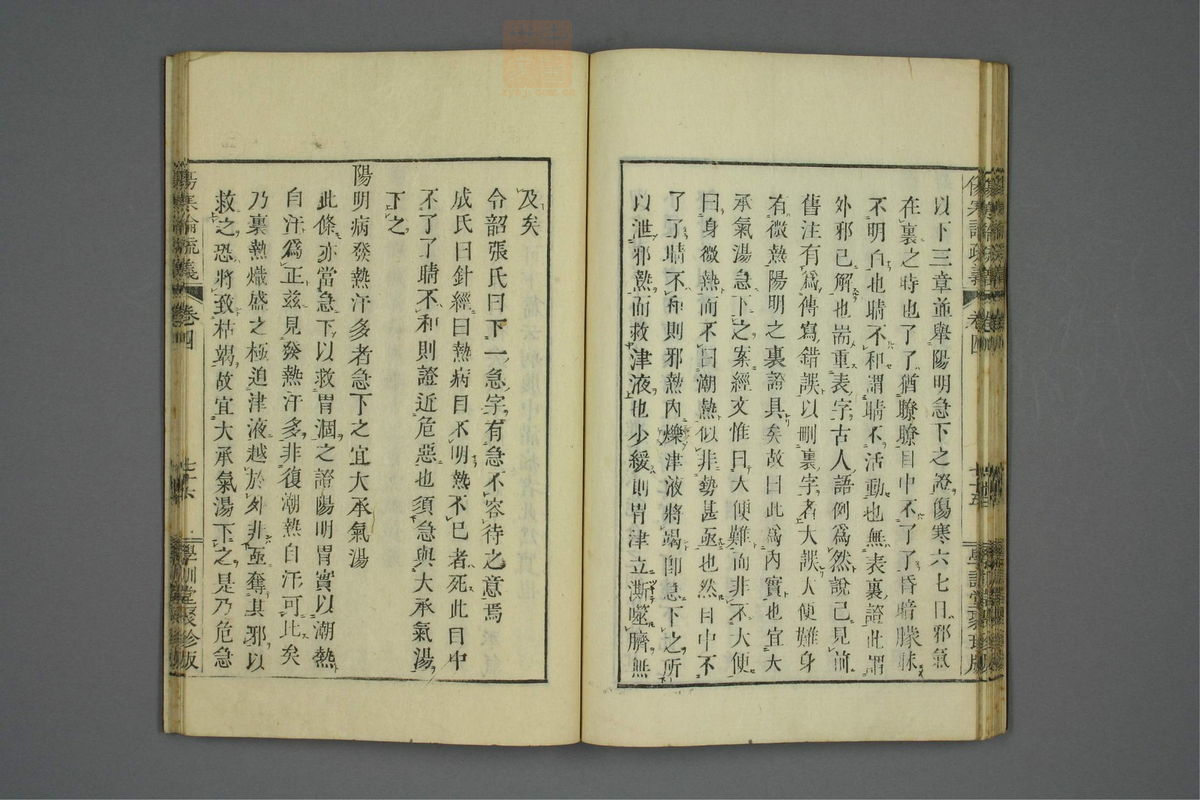 以下三章並舉陽明急下之證傷寒六七日邪氣
在裏之時也了了猶瞭瞭目中不了了昏暗朦昧
不明白也睛不和謂睛不活動也無表裏證此謂
外邪已解也耑重表字古人語例爲然說已見前
舊注有爲傳寫錯誤以刪裏字者大誤大便難身
有微熱陽明之裏證具矣故曰此爲內實也宜大
承氣湯急下之案經文惟曰大便難而非不大便
曰身微熱而不曰潮熱似非勢甚亟也然目中不
了了睛不和則邪熱內爍津液將竭卽急下之所
以泄邪熱而救津液也少緩則胃津立澌噬臍無
傷寒論疏義
卷四
七十五
學訓堂聚珍版
及矣
令韶張氏曰下一急字有急不容待之意焉
成氏曰針經曰熱病目不明熱不已者死此目中
不了了睛不和則證近危惡也須急與大承氣湯
下之
陽明病發熱汗多者急下之宜大承氣湯
此條亦當急下以救胃涸之證陽明胃實以潮熱
自汗爲正茲見發熱汗多非復潮熱自汗可比矣
乃裏熱熾盛之極迫津液越於外非亟奪其邪以
救之恐將致枯竭故宜大承氣湯下之是乃危急
傷寒論疏義
卷四
七十六
學訓堂聚珍版